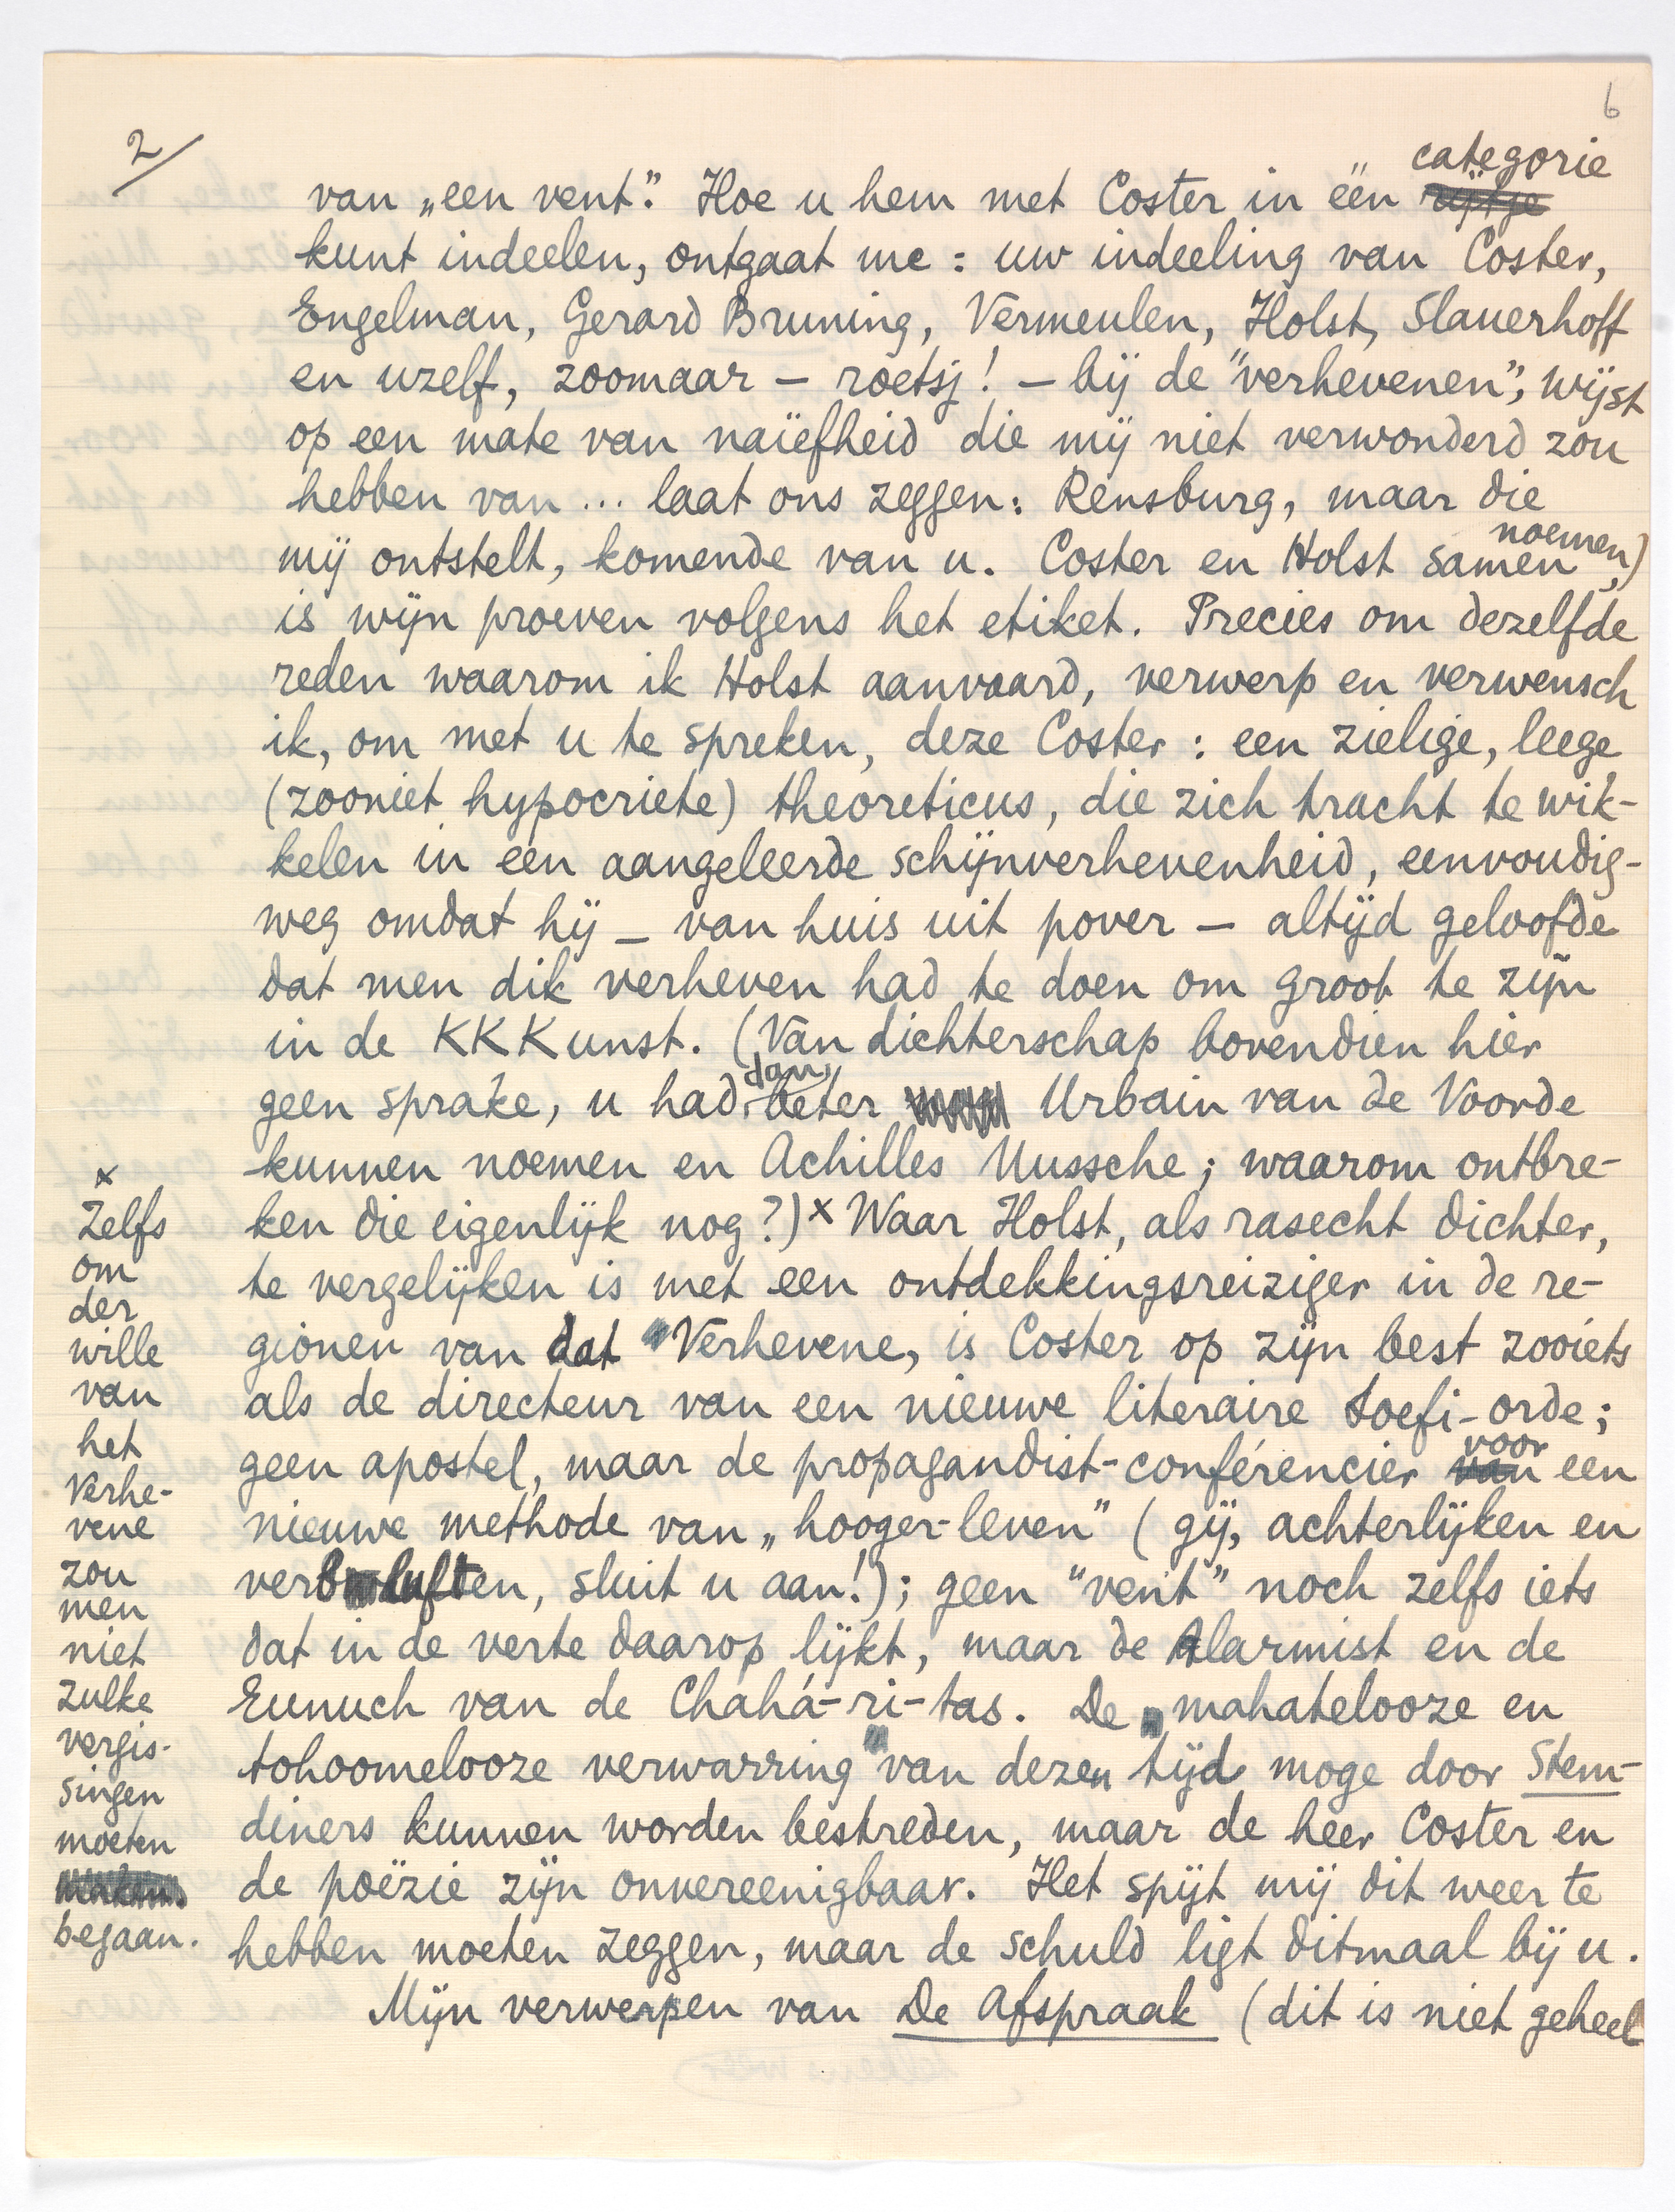 6
2/
van „een vent". Hoe u hem met Coster in één categorie
kunt indeelen, ontgaat me: uw indeeling van Coster,
Engelman, Gerard Bruning, Vermeulen, Holst, Slauerhoff
en uzelf, zoomaar – roetsj! – bij de "verhevenen", wijst
op een mate van naïefheid die mij niet verwonderd zou
hebben van ... laat ons zeggen: Rensburg, maar die
mij ontstelt, komende van u. Coster en Holst samen noemen,)
is wijn proeven volgens het etiket. Precies om dezelfde
reden waarom ik Holst aanvaard, verwerp en verwensch
ik, om met u te spreken, deze Coster: een zielige, leege
(zooniet hypocriete) theoreticus, die zich tracht te wik-
kelen in een aangeleerde schijnverhevenheid, eenvoudig-
weg omdat hij – van huis uit pover – altijd geloofde
dat men dik verheven had te doen om groot te zijn
in de KKKunst. (Van dichterschap bovendien hier
geen sprake, u had dan beter Urbain van de Voorde
kunnen noemen en Achilles Mussche; waarom ontbre-
ken die eigenlijk nog?) x Waar Holst, als rasecht dichter,
te vergelijken is met een ontdekkingsreiziger in de re-
gionen van dat Verhevene, is Coster op zijn best zooiets
als de directeur van een nieuwe literaire soefi-orde;
geen apostel, maar de propagandist-conférencier voor een
nieuwe methode van „hooger-leven" (gij, achterlijken en
verbluften, sluit u aan!); geen "vent" noch zelfs iets
dat in de verte daarop lijkt, maar de Alarmist en de
Eunuch van de Chahá-ri-tas. De mahatelooze en
tohoomelooze verwarring van dezen tijd moge door Stem-
diners kunnen worden bestreden, maar de heer Coster en
de poëzie zijn onvereenigbaar. Het spijt mij dit weer te
hebben moeten zeggen, maar de schuld ligt ditmaal bij u.
Mijn verwerpen van De Afspraak (dit is niet geheel
x
Zelfs
om
der
wille
van
het
Verhe-
vene
zou
men
niet
zulke
vergis-
singen
moeten
begaan.